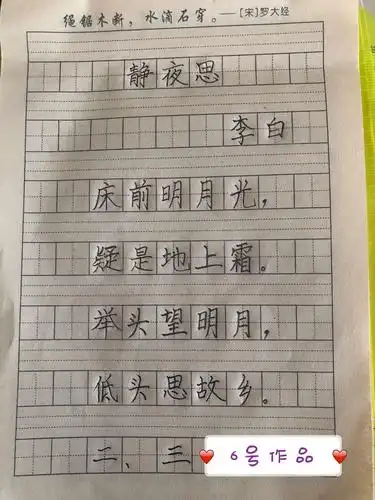 绳锯木断，水滴石穿。——[宋]罗大经
静夜思
李白
床前明月光，
疑是地上霜。
举头望明月，
低头思故乡。
二、三
6号作品